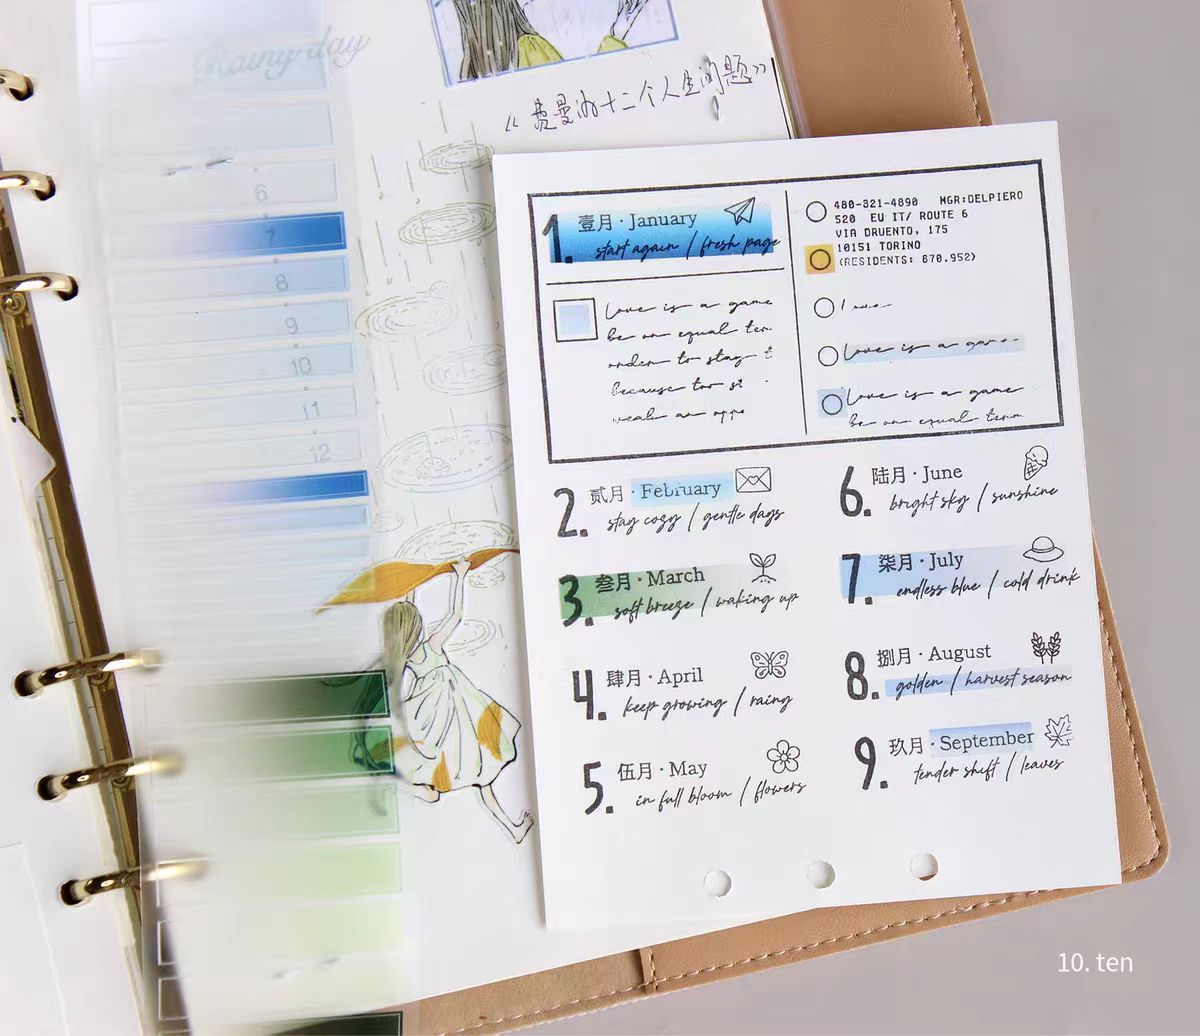 Rainy day
6
7
8
9
10
11
12
《曼曼的十二个人生问题》
1. 壹月 · January
start again / fresh page
Love is a game
be on equal
order to stay
because
weak an oppo
480-321-4890 MGR:DELPIERO
520 EU IT/ ROUTE 6
VIA DRUENTO, 175
10151 TORINO
(RESIDENTS: 870.952)
Love is a game
Love is a game
be on equal
2. 贰月 · February
stay cozy / gentle days
3. 叁月 · March
soft breeze / waking up
4. 肆月 · April
keep growing / rainy
5. 伍月 · May
in full bloom / flowers
6. 陆月 · June
bright sky / sunshine
7. 柒月 · July
endless blue / cold drink
8. 捌月 · August
golden / harvest season
9. 玖月 · September
tender shift / leaves
10. ten